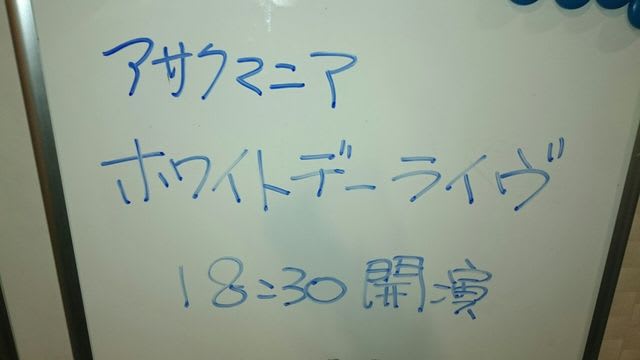 アサクマニア
ホワイトデーライヴ
18:30 開演